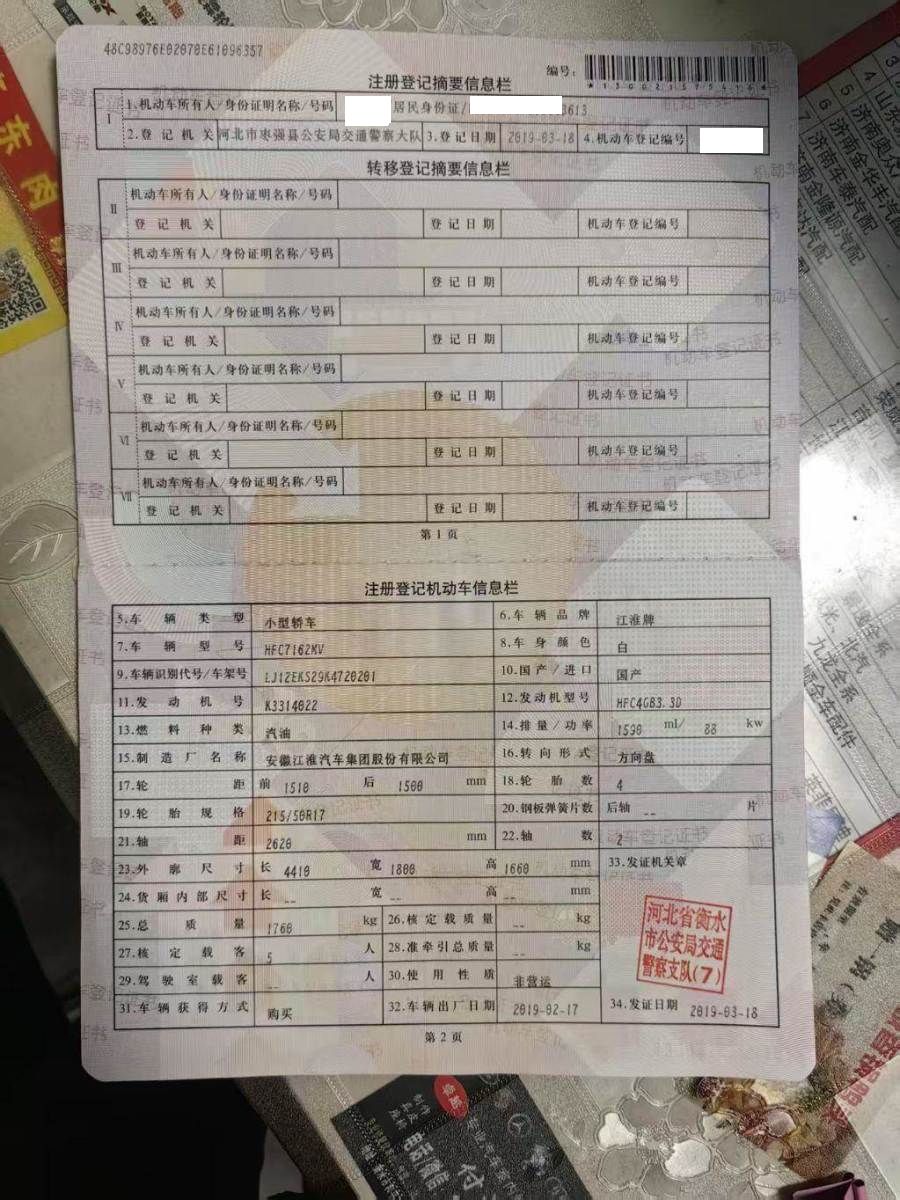 48C98976E02070E61096357
编号:
*130021575416*
注册登记摘要信息栏
I
1.机动车所有人/身份证明名称/号码 居民身份证/ 3613
2.登记机关 河北市枣强县公安局交通警察大队 3.登记日期 2019-03-18 4.机动车登记编号
转移登记摘要信息栏
II
机动车所有人/身份证明名称/号码
登记机关 登记日期 机动车登记编号
III
机动车所有人/身份证明名称/号码
登记机关 登记日期 机动车登记编号
IV
机动车所有人/身份证明名称/号码
登记机关 登记日期 机动车登记编号
V
机动车所有人/身份证明名称/号码
登记机关 登记日期 机动车登记编号
VI
机动车所有人/身份证明名称/号码
登记机关 登记日期 机动车登记编号
VII
机动车所有人/身份证明名称/号码
登记机关 登记日期 机动车登记编号
第1页
注册登记机动车信息栏
5.车辆类型 小型轿车 6.车辆品牌 江淮牌
7.车辆型号 HFC7162KV 8.车身颜色 白
9.车辆识别代号/车架号 LJ12EKS29K4720201 10.国产/进口 国产
11.发动机号 K3314022 12.发动机型号 HFC4GB3.3D
13.燃料种类 汽油 14.排量/功率 1590 ml/ 88 kw
15.制造厂名称 安徽江淮汽车集团股份有限公司 16.转向形式 方向盘
17.轮距 前 1510 后 1500 mm 18.轮胎数 4
19.轮胎规格 215/50R17 20.钢板弹簧片数 后轴 -- 片
21.轴距 2620 mm 22.轴数 2
23.外廓尺寸 长 4410 宽 1800 高 1660 mm 33.发证机关章
24.货厢内部尺寸 长 -- 宽 -- 高 -- mm
25.总质量 1760 kg 26.核定载质量 -- kg
27.核定载客 5 人 28.准牵引总质量 -- kg
29.驾驶室载客 -- 人 30.使用性质 非营运
31.车辆获得方式 购买 32.车辆出厂日期 2019-02-17 34.发证日期 2019-03-18
河北省衡水
市公安局交通
警察支队(7)
第2页